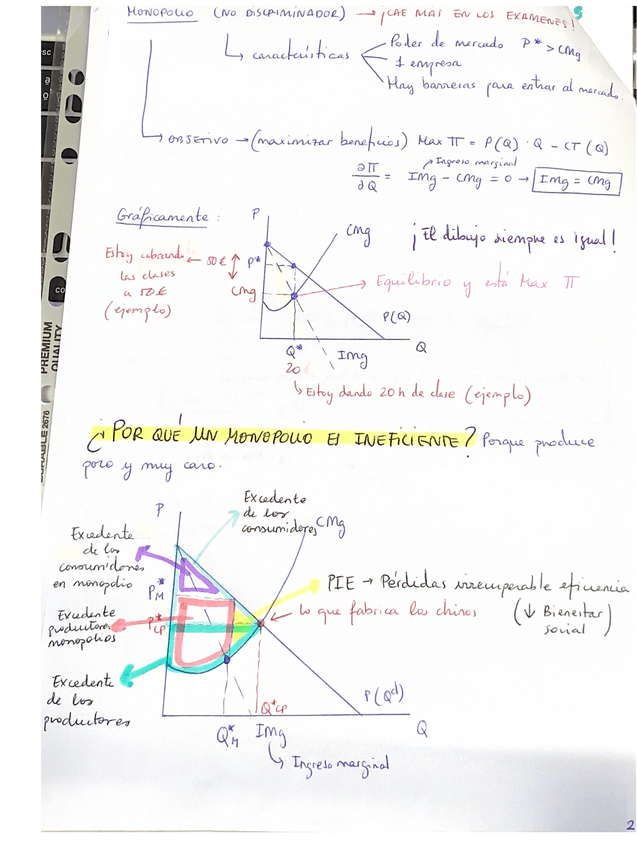 MONOPOLIO (NO DISCRIMINADOR) → ¡CAE MAS EN LOS EXAMENES! 5
↳ características
Poder de mercado P* > CMg
1 empresa
Hay barreras para entrar al mercado.
↳ OBJETIVO → (maximizar beneficios) Max π = P(Q) · Q - CT(Q)
Ingreso marginal
∂π/∂Q = IMg - CMg = 0 → IMg = CMg
Gráficamente:
P
CMg
¡El dibujo siempre es igual!
Estoy cobrando
las clases
a 50€
(ejemplo)
50€
P*
CMg
Equilibrio y está Max π
P(Q)
Q*
IMg
Q
20
↳ Estoy dando 20 h de clase (ejemplo)
¿POR QUÉ UN MONOPOLIO EI INEFICIENTE? Porque produce
poco y muy caro.
P
Excedente
de los
consumidores
CMg
Excedente
de los
consumidores
en monopolio
P*M
PIE → Pérdidas irrecuperable eficiencia
(↓ Bienestar
social)
Excedente
productores
monopolios
P*CP
Lo que fabrica los chinos
Excedente
de los
productores
Q*CP
P(Qd)
Q*M
IMg
Q
↳ Ingreso marginal
2
PREMIUM
QUALITY
DURABLE 2676